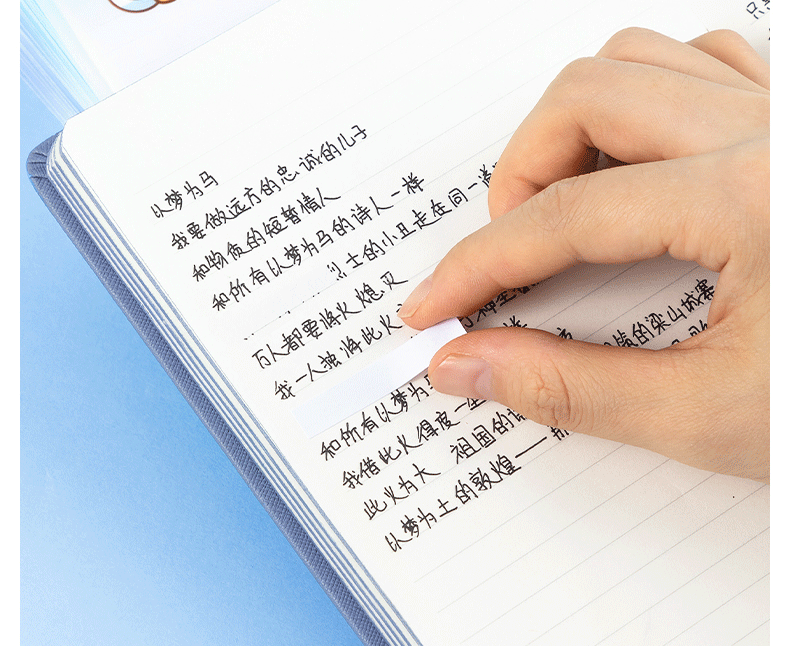 只
以梦为马
我要做远方的忠诚的儿子
和物质的短暂情人
和所有以梦为马的诗人一样
士的小丑走在同一道
万人都要将火熄灭
我一人独将此火 神圣
的梁山城寨
和所有以梦为马
我借此火得度一生
此火为大 祖国的语
以梦为土的敦煌——那